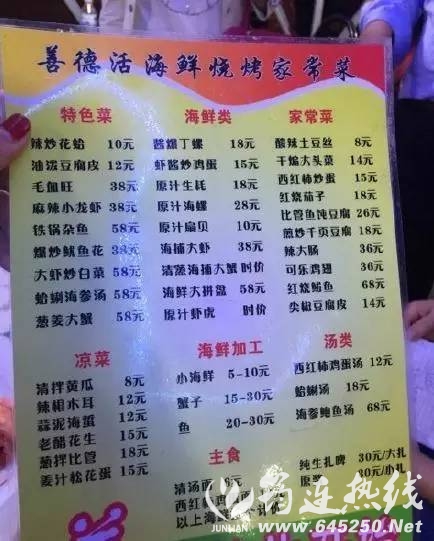 善德活海鲜烧烤家常菜
特色菜
辣炒花蛤 10元
油泼豆腐皮 12元
毛血旺 38元
麻辣小龙虾 38元
铁锅杂鱼 58元
爆炒鱿鱼花 38元
大虾炒白菜 58元
蛤蜊海参汤 58元
葱姜大蟹 58元
海鲜类
酱爆丁螺 18元
虾酱炒鸡蛋 15元
原汁生蚝 18元
原汁海螺 28元
原汁扇贝 10元
海捕大虾 38元
清蒸海捕大蟹 时价
海鲜大拼盘 58元
原汁虾虎 时价
家常菜
酸辣土豆丝 8元
干煸大头菜 14元
西红柿炒蛋 15元
红烧茄子 18元
比管鱼炖豆腐 26元
煎炒千页豆腐 18元
辣大肠 36元
可乐鸡翅 36元
红烧鲐鱼 68元
尖椒豆腐皮 14元
凉菜
清拌黄瓜 8元
辣根木耳 12元
蒜泥海蜇 15元
老醋花生 15元
葱拌比管 18元
姜汁松花蛋 15元
海鲜加工
小海鲜 5-10元
蟹子 15-30元
鱼 20-30元
主食
清汤面
西红柿鸡
以上海
汤类
西红柿鸡蛋汤 12元
蛤蜊汤 18元
海参鲍鱼汤 68元
纯生扎啤 30元/大扎
原浆 30元/小扎
连热线
JUNLIAN
www.645250.Net